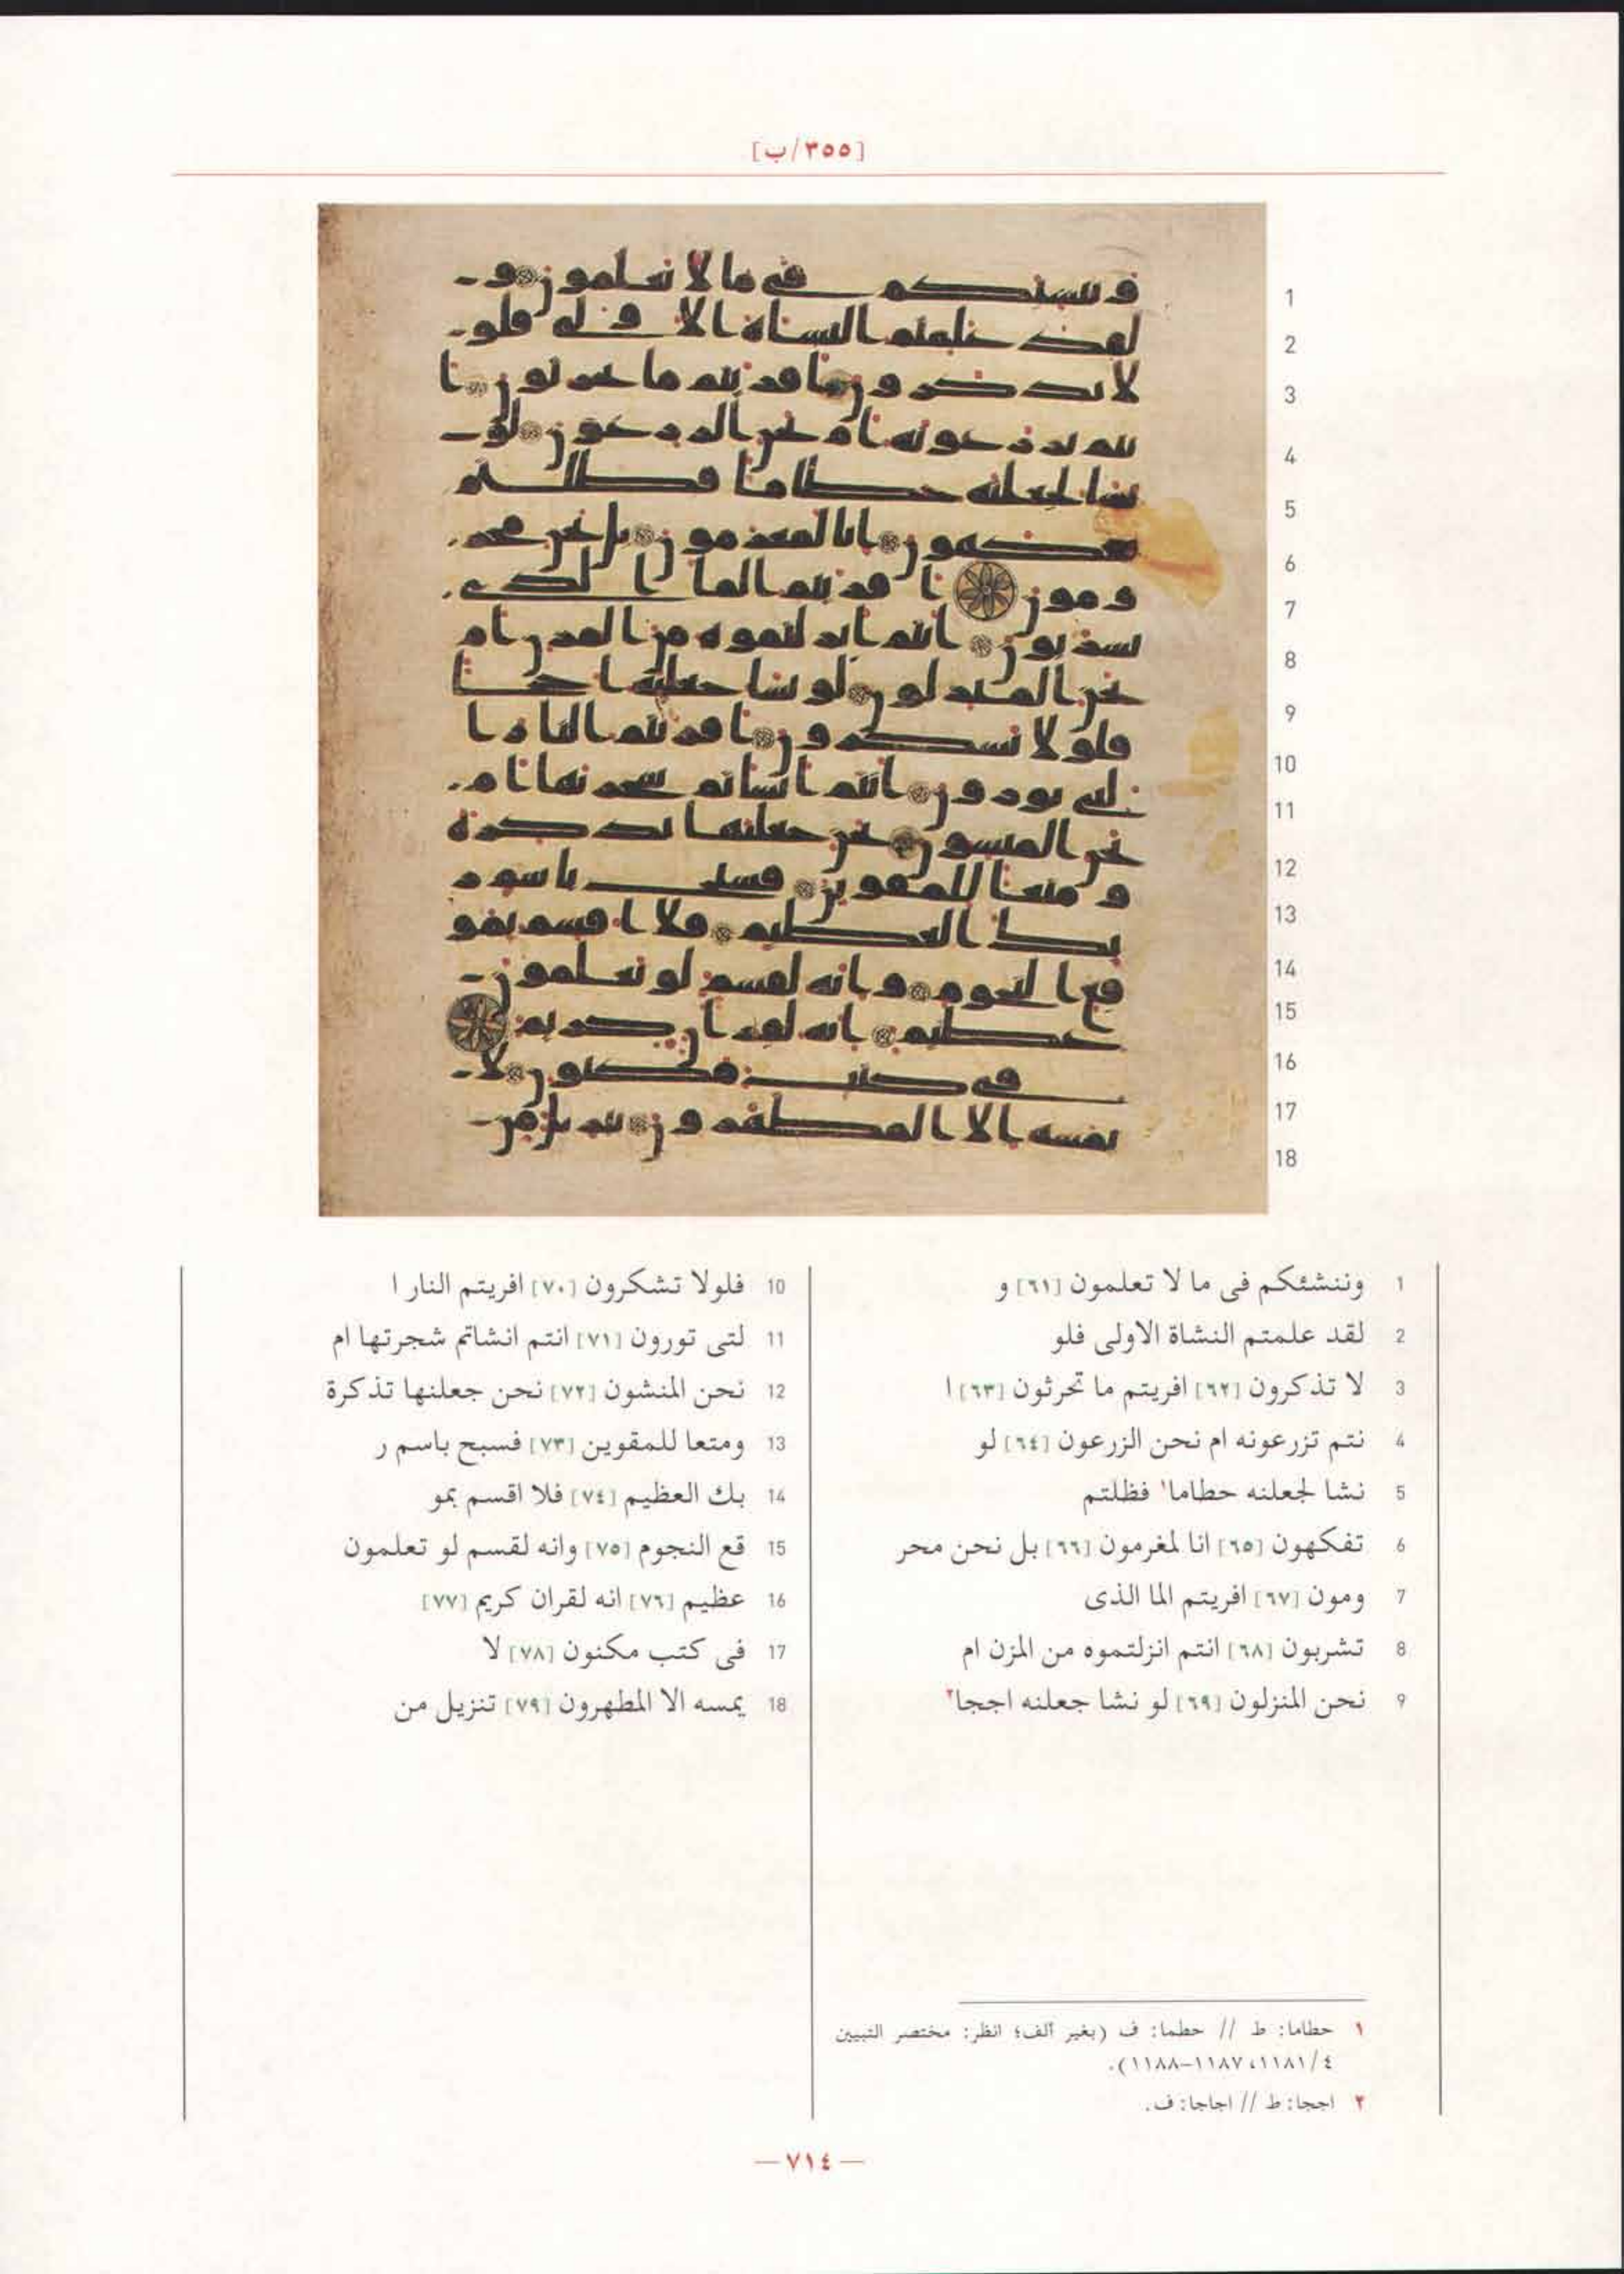 [٣٥٥/ب]
1 وننشئكم فى ما لا تعلمون [٦١] و
2 لقد علمتم النشاة الاولى فلو
3 لا تذكرون [٦٢] افريتم ما تحرثون [٦٣] ا
4 نتم تزرعونه ام نحن الزرعون [٦٤] لو
5 نشا لجعلنه حطاما١ فظلتم
6 تفكهون [٦٥] انا لمغرمون [٦٦] بل نحن محر
7 ومون [٦٧] افريتم الما الذى
8 تشربون [٦٨] انتم انزلتموه من المزن ام
9 نحن المنزلون [٦٩] لو نشا جعلنه اججا٢
10 فلولا تشكرون [٧٠] افريتم النار ا
11 لتى تورون [٧١] انتم انشاتم شجرتها ام
12 نحن المنشون [٧٢] نحن جعلنها تذكرة
13 ومتعا للمقوين [٧٣] فسبح باسم ر
14 بك العظيم [٧٤] فلا اقسم بمو
15 قع النجوم [٧٥] وانه لقسم لو تعلمون
16 عظيم [٧٦] انه لقران كريم [٧٧]
17 فى كتب مكنون [٧٨] لا
18 يمسه الا المطهرون [٧٩] تنزيل من
١ حطاما: ط // حطما: ف (بغير ألف؛ انظر: مختصر التبيين
٤/١١٨١، ١١٨٧-١١٨٨).
٢ اججا: ط // اجاجا: ف.
— ٧١٤ —